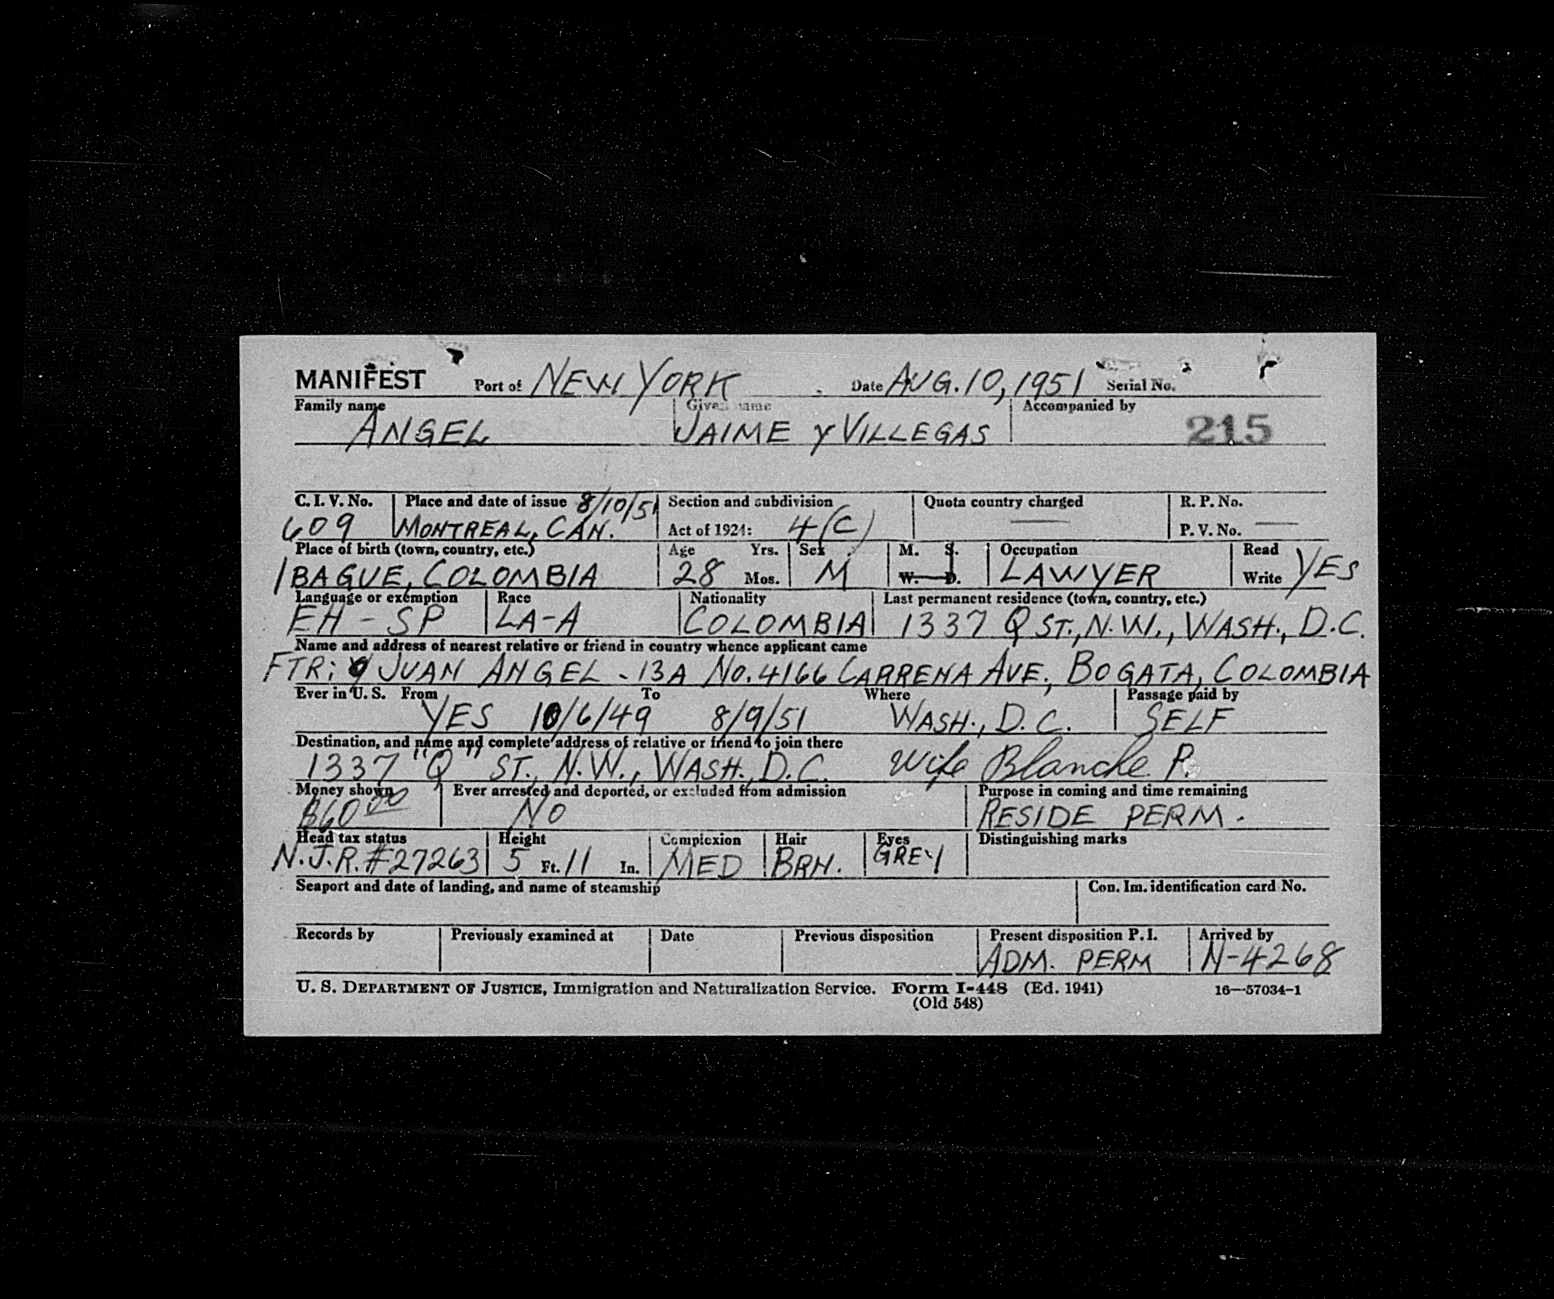 MANIFEST Port of NEW YORK Date AUG. 10, 1951 Serial No.
Family name Given name Accompanied by
ANGEL JAIME y VILLEGAS 215
C. I. V. No. Place and date of issue 8/10/51 Section and subdivision Quota country charged R. P. No.
609 MONTREAL, CAN. Act of 1924: 4(C) — P. V. No. —
Place of birth (town, country, etc.) Age Yrs. Sex M. S. Occupation Read
IBAGUE, COLOMBIA 28 Mos. M W. D. LAWYER Write YES
Language or exemption Race Nationality Last permanent residence (town, country, etc.)
EH - SP LA-A COLOMBIA 1337 Q ST., N.W., WASH., D.C.
Name and address of nearest relative or friend in country whence applicant came
FTR: JUAN ANGEL - 13A No. 4166 CARRENA AVE., BOGATA, COLOMBIA
Ever in U. S. From To Where Passage paid by
YES 10/6/49 8/9/51 WASH., D.C. SELF
Destination, and name and complete address of relative or friend to join there
1337 "Q" ST., N.W., WASH., D.C. Wife Blanche P.
Money shown Ever arrested and deported, or excluded from admission Purpose in coming and time remaining
$60.00 NO RESIDE PERM.
Head tax status Height Complexion Hair Eyes Distinguishing marks
N.J.R. #27263 5 Ft. 11 In. MED BRN. GREY
Seaport and date of landing, and name of steamship Con. Im. identification card No.
Records by Previously examined at Date Previous disposition Present disposition P. I. Arrived by
ADM. PERM N-4268
U. S. DEPARTMENT OF JUSTICE, Immigration and Naturalization Service. Form I-448 (Ed. 1941) 16—57034-1
(Old 548)